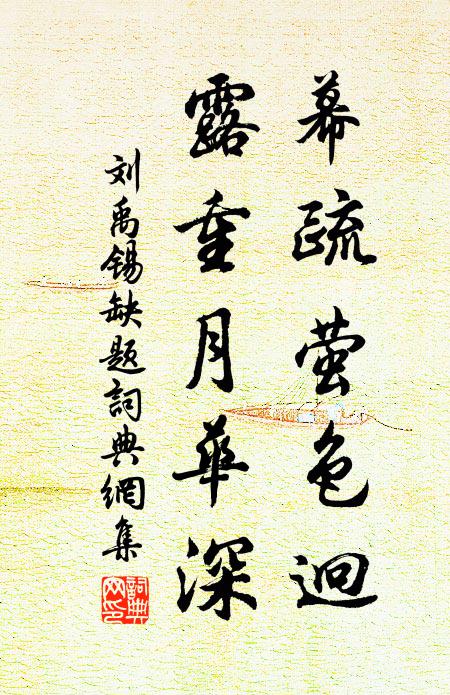 幕疏萤色迥
露重月华深
刘禹锡缺题詞典網集
詞典网印